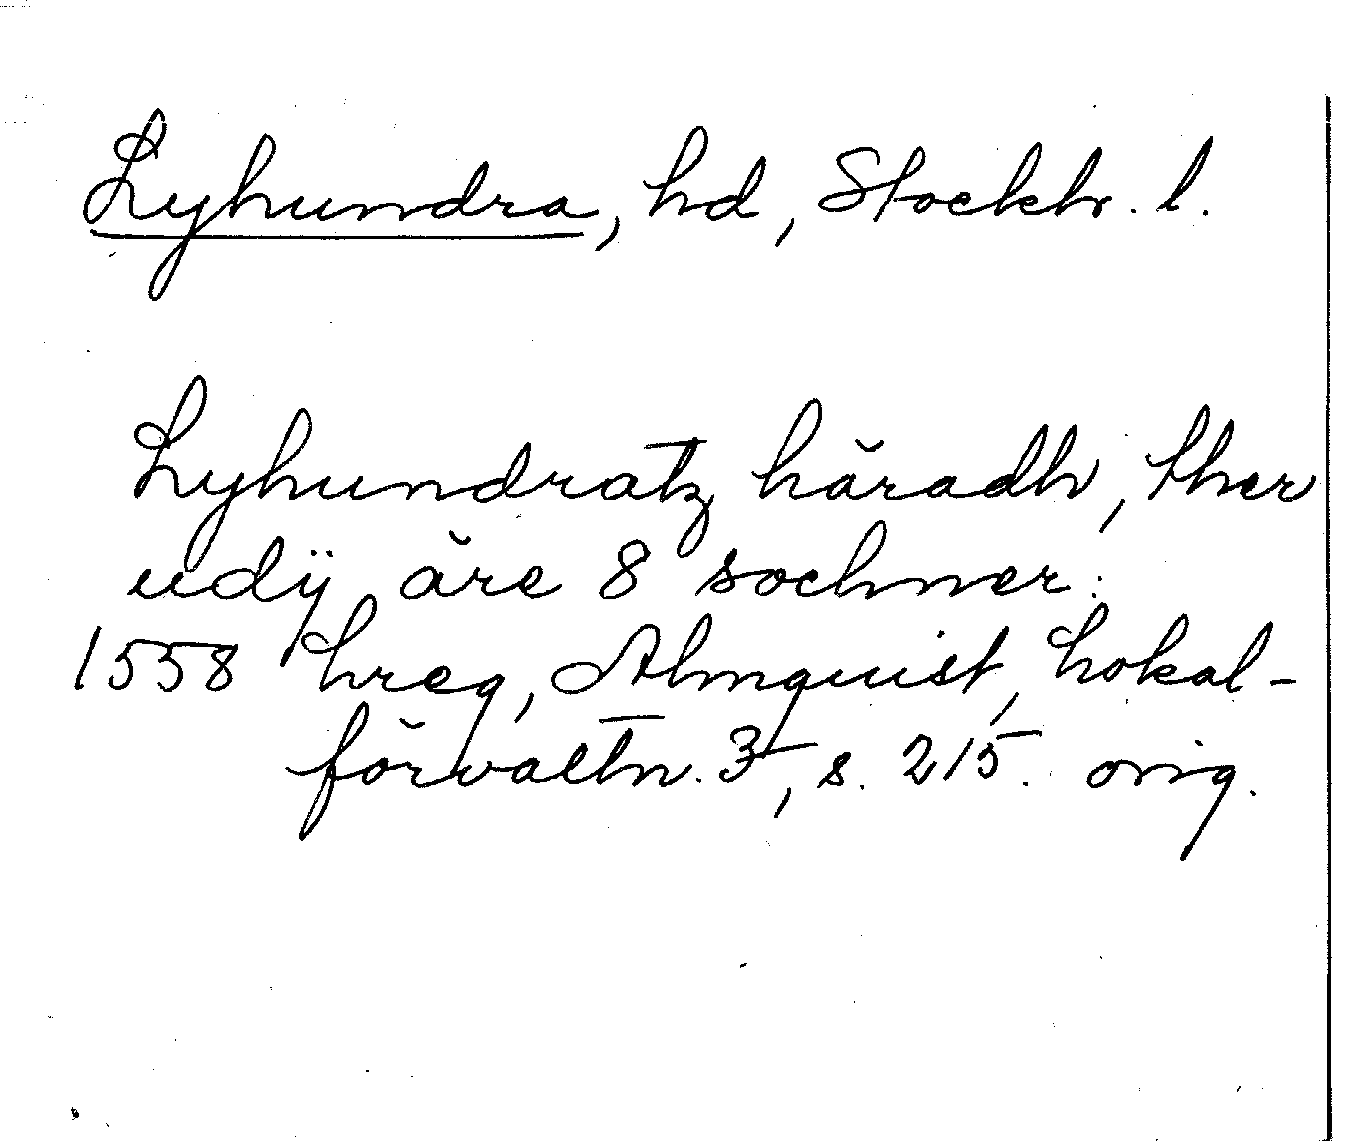 Lyhundra, hd, Stockh. l.
Lyhundratz häradh, ther
udÿ äre 8 sochner:
1558 hreg, Almquist, Lokal-
förvaltn. 3, s. 215. orig.